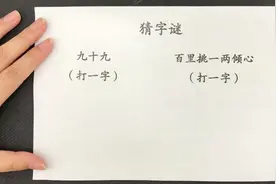 猜字谜
九十九
(打一字)
百里挑一两倾心
(打一字)